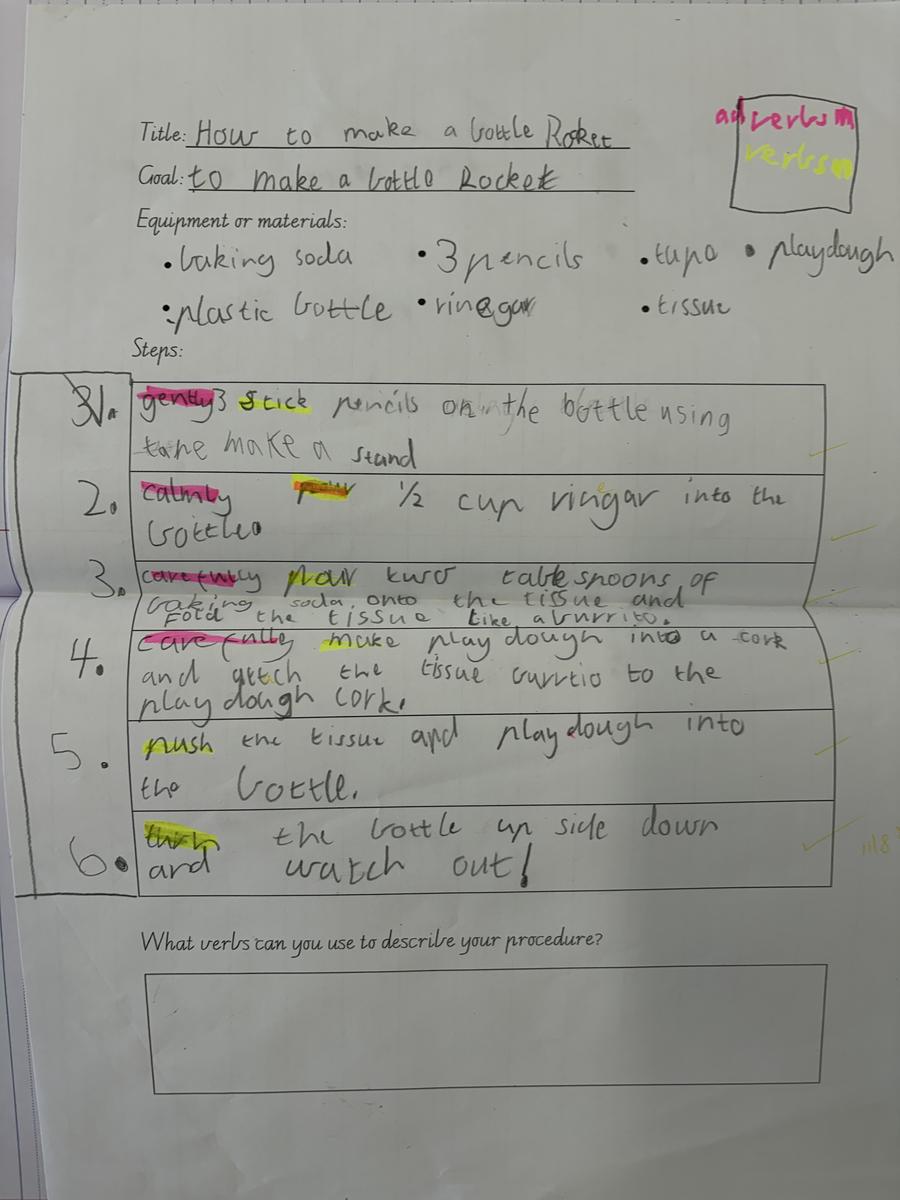 adverbs
verbs
Title: How to make a bottle Rocket
Goal: to make a bottle Rocket
Equipment or materials:
• baking soda • 3 pencils • tape • playdough
• plastic bottle • vinegar • tissue
Steps:
1. gently stick 3 pencils on the bottle using
tape make a stand
2. calmly pour 1/2 cup vingar into the
bottle.
3. carefully pour two table spoons of
baking soda onto the tissue and
Fold the tissue like a burrito.
4. carefully make play dough into a cork
and attch the tissue burrtio to the
play dough cork.
5. push the tissue and playdough into
the bottle.
6. the bottle up side down
and watch out!
What verbs can you use to describe your procedure?